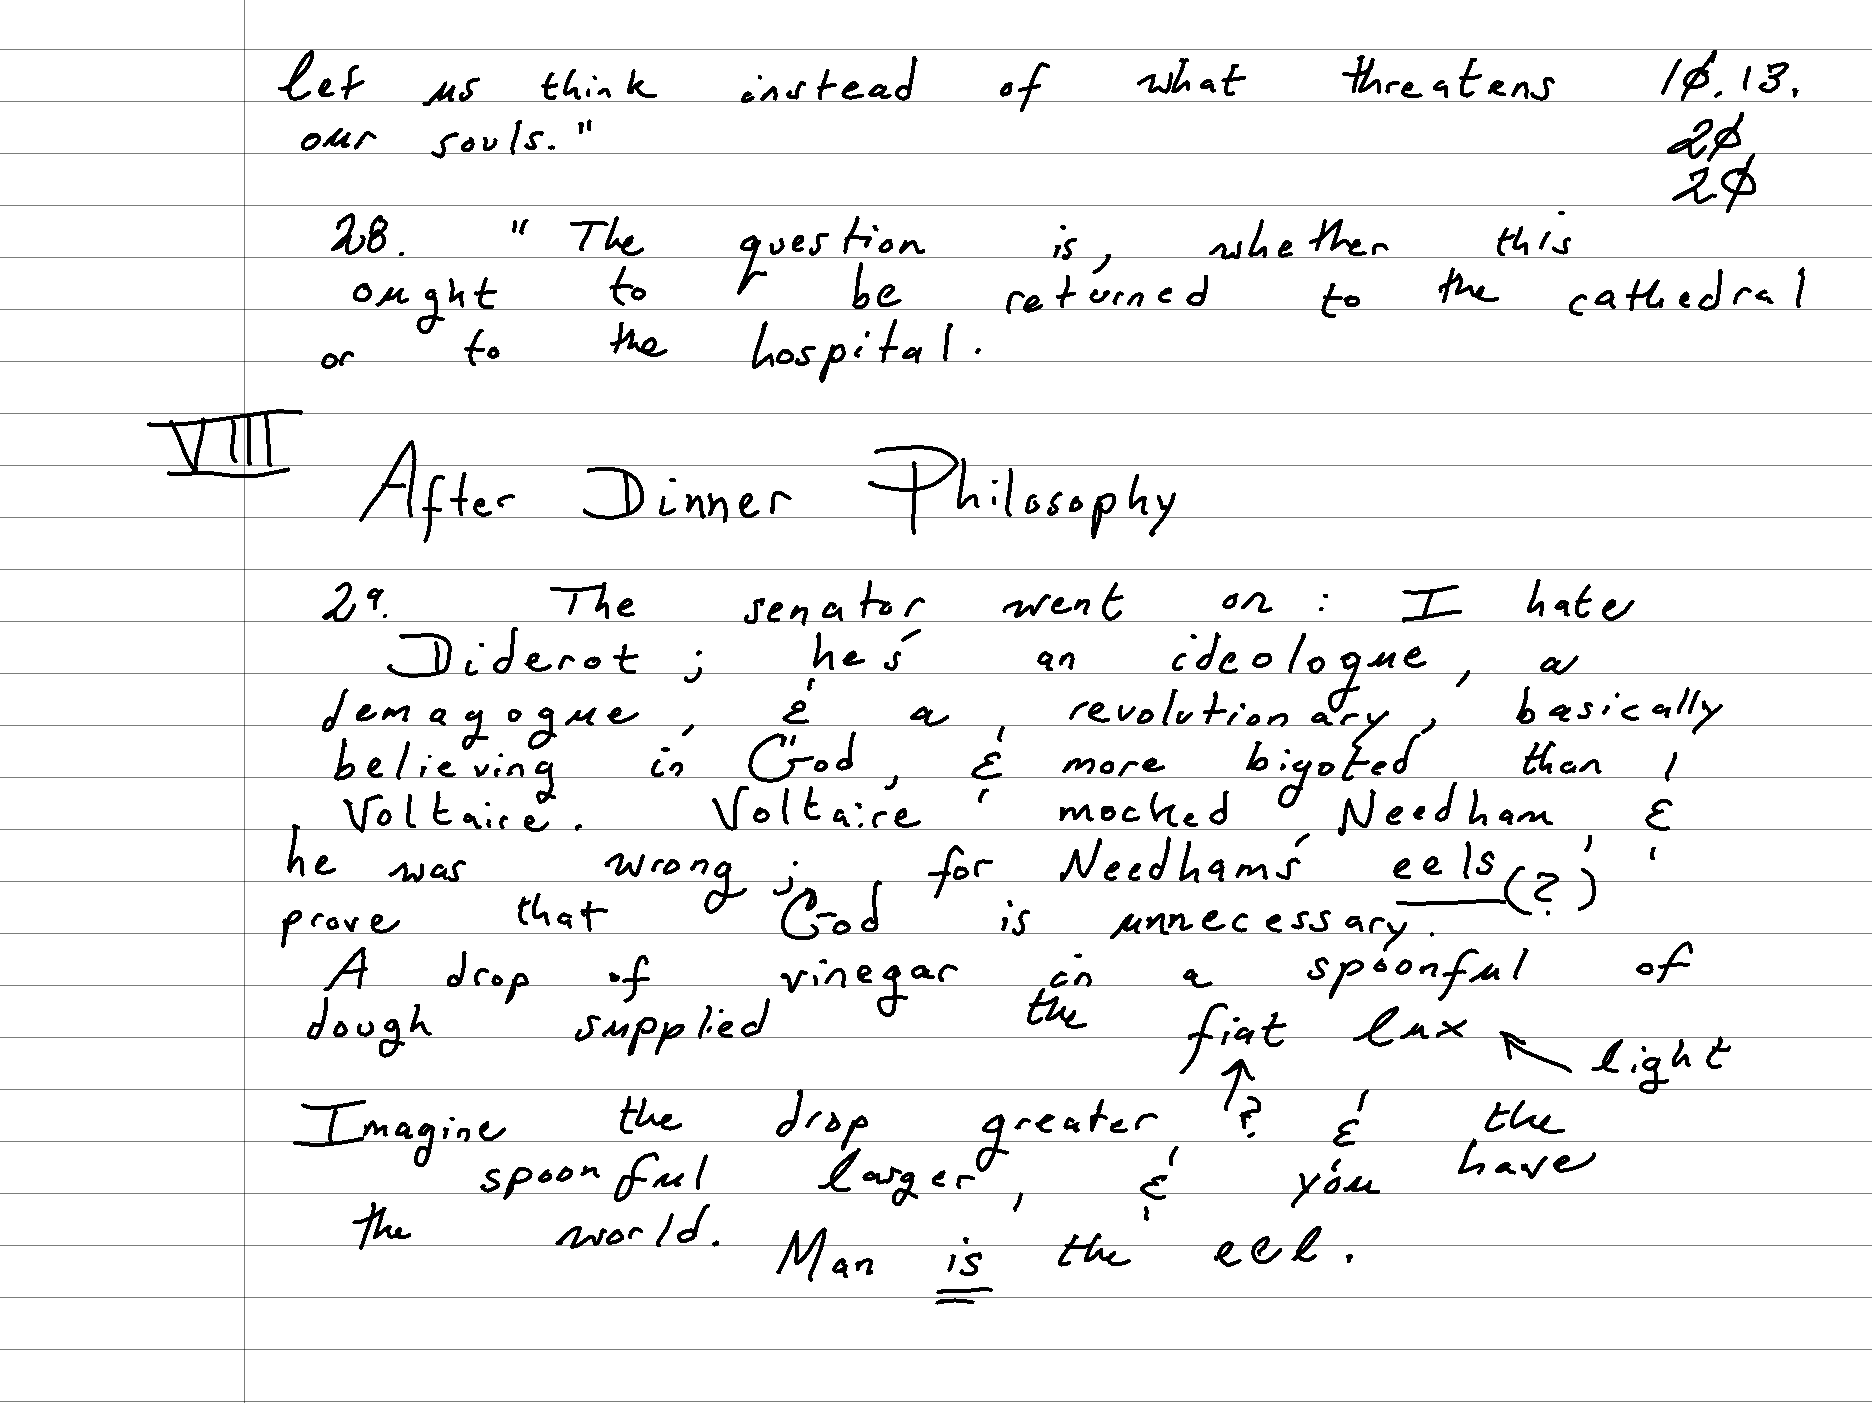 let us think instead of what threatens 10.13.
our souls." 20
20
28. "The question is, whether this
ought to be returned to the cathedral
or to the hospital.
VIII
After Dinner Philosophy
29. The senator went on: I hate
Diderot; he's an ideologue, a
demagogue, & a revolutionary, basically
believing in God, & more bigoted than
Voltaire. Voltaire mocked Needham, &
he was wrong; for Needham's eels (?)
prove that God is unnecessary.
A drop of vinegar in a spoonful of
dough supplied the fiat lux
light
?
Imagine the drop greater, & the
spoonful larger, & you have
the world. Man is the eel.